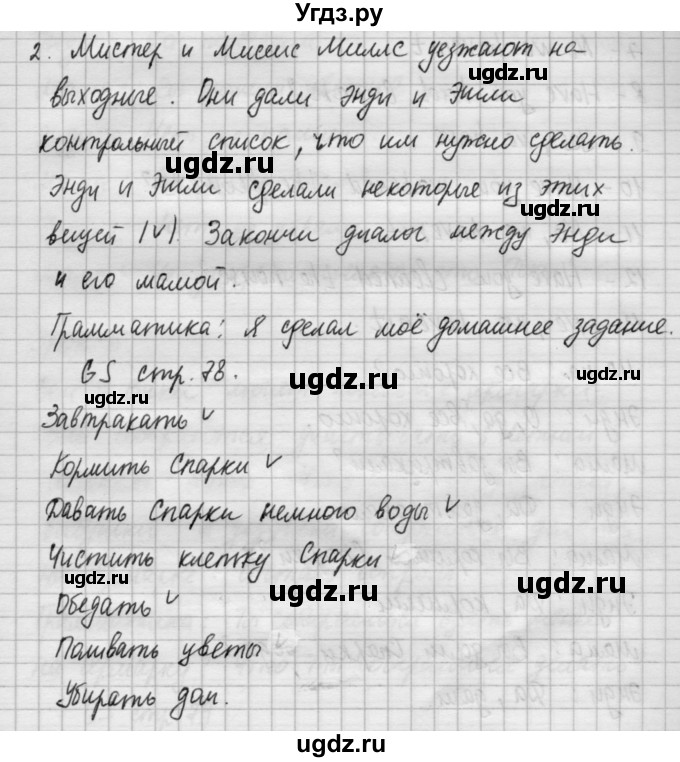 Угдз.ру
2. Мистер и Миссис Миллс уезжают на
выходные. Они дали Энди и Эшли
контрольный список, что им нужно сделать.
Энди и Эшли сделали некоторые из этих
вещей (v). Закончи диалог между Энди
и его мамой.
Грамматика: Я сделал моё домашнее задание.
GS стр. 78.
Завтракать ✓
Кормить Спарки ✓
Давать Спарки немного воды ✓
Чистить клетку Спарки ✓
Обедать ✓
Поливать цветы
Убирать дом.
ugdz.ru